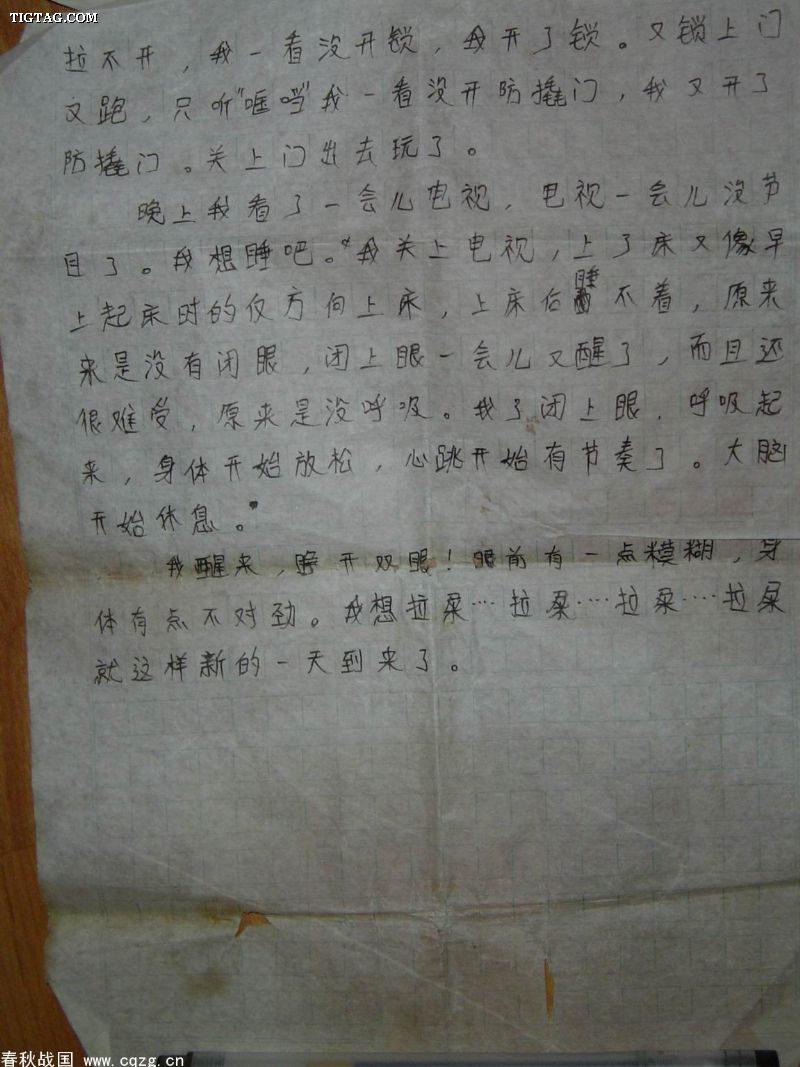 TIGTAG.COM
拉不开，我一看没开锁，我开了锁。又锁上门
又跑，只听"哐当"我一看没开防撬门，我又开了
防撬门。关上门出去玩了。
晚上我看了一会儿电视，电视一会儿没节
目了。我想睡吧。我关上电视，上了床又像早
上起床时的仅方向上床，上床后睡不着，原来
来是没有闭眼，闭上眼一会儿又醒了，而且还
很难受，原来是没呼吸。我了闭上眼．呼吸起
来，身体开始放松，心跳开始有节奏了。大脑
开始休息。
我醒来，睁开双眼！眼前有一点模糊，身
体有点不对劲。我想拉屎…拉屎…拉屎…拉屎
就这样新的一天到来了。
春秋战国 www.cqzg.cn